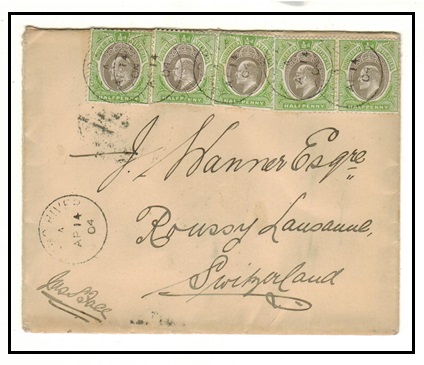 HALFPENNY HALFPENNY HALFPENNY HALFPENNY HALFPENNY
J. Wanner Esqre
Roussy Lausanne,
Switzerland
A
AP 14
04